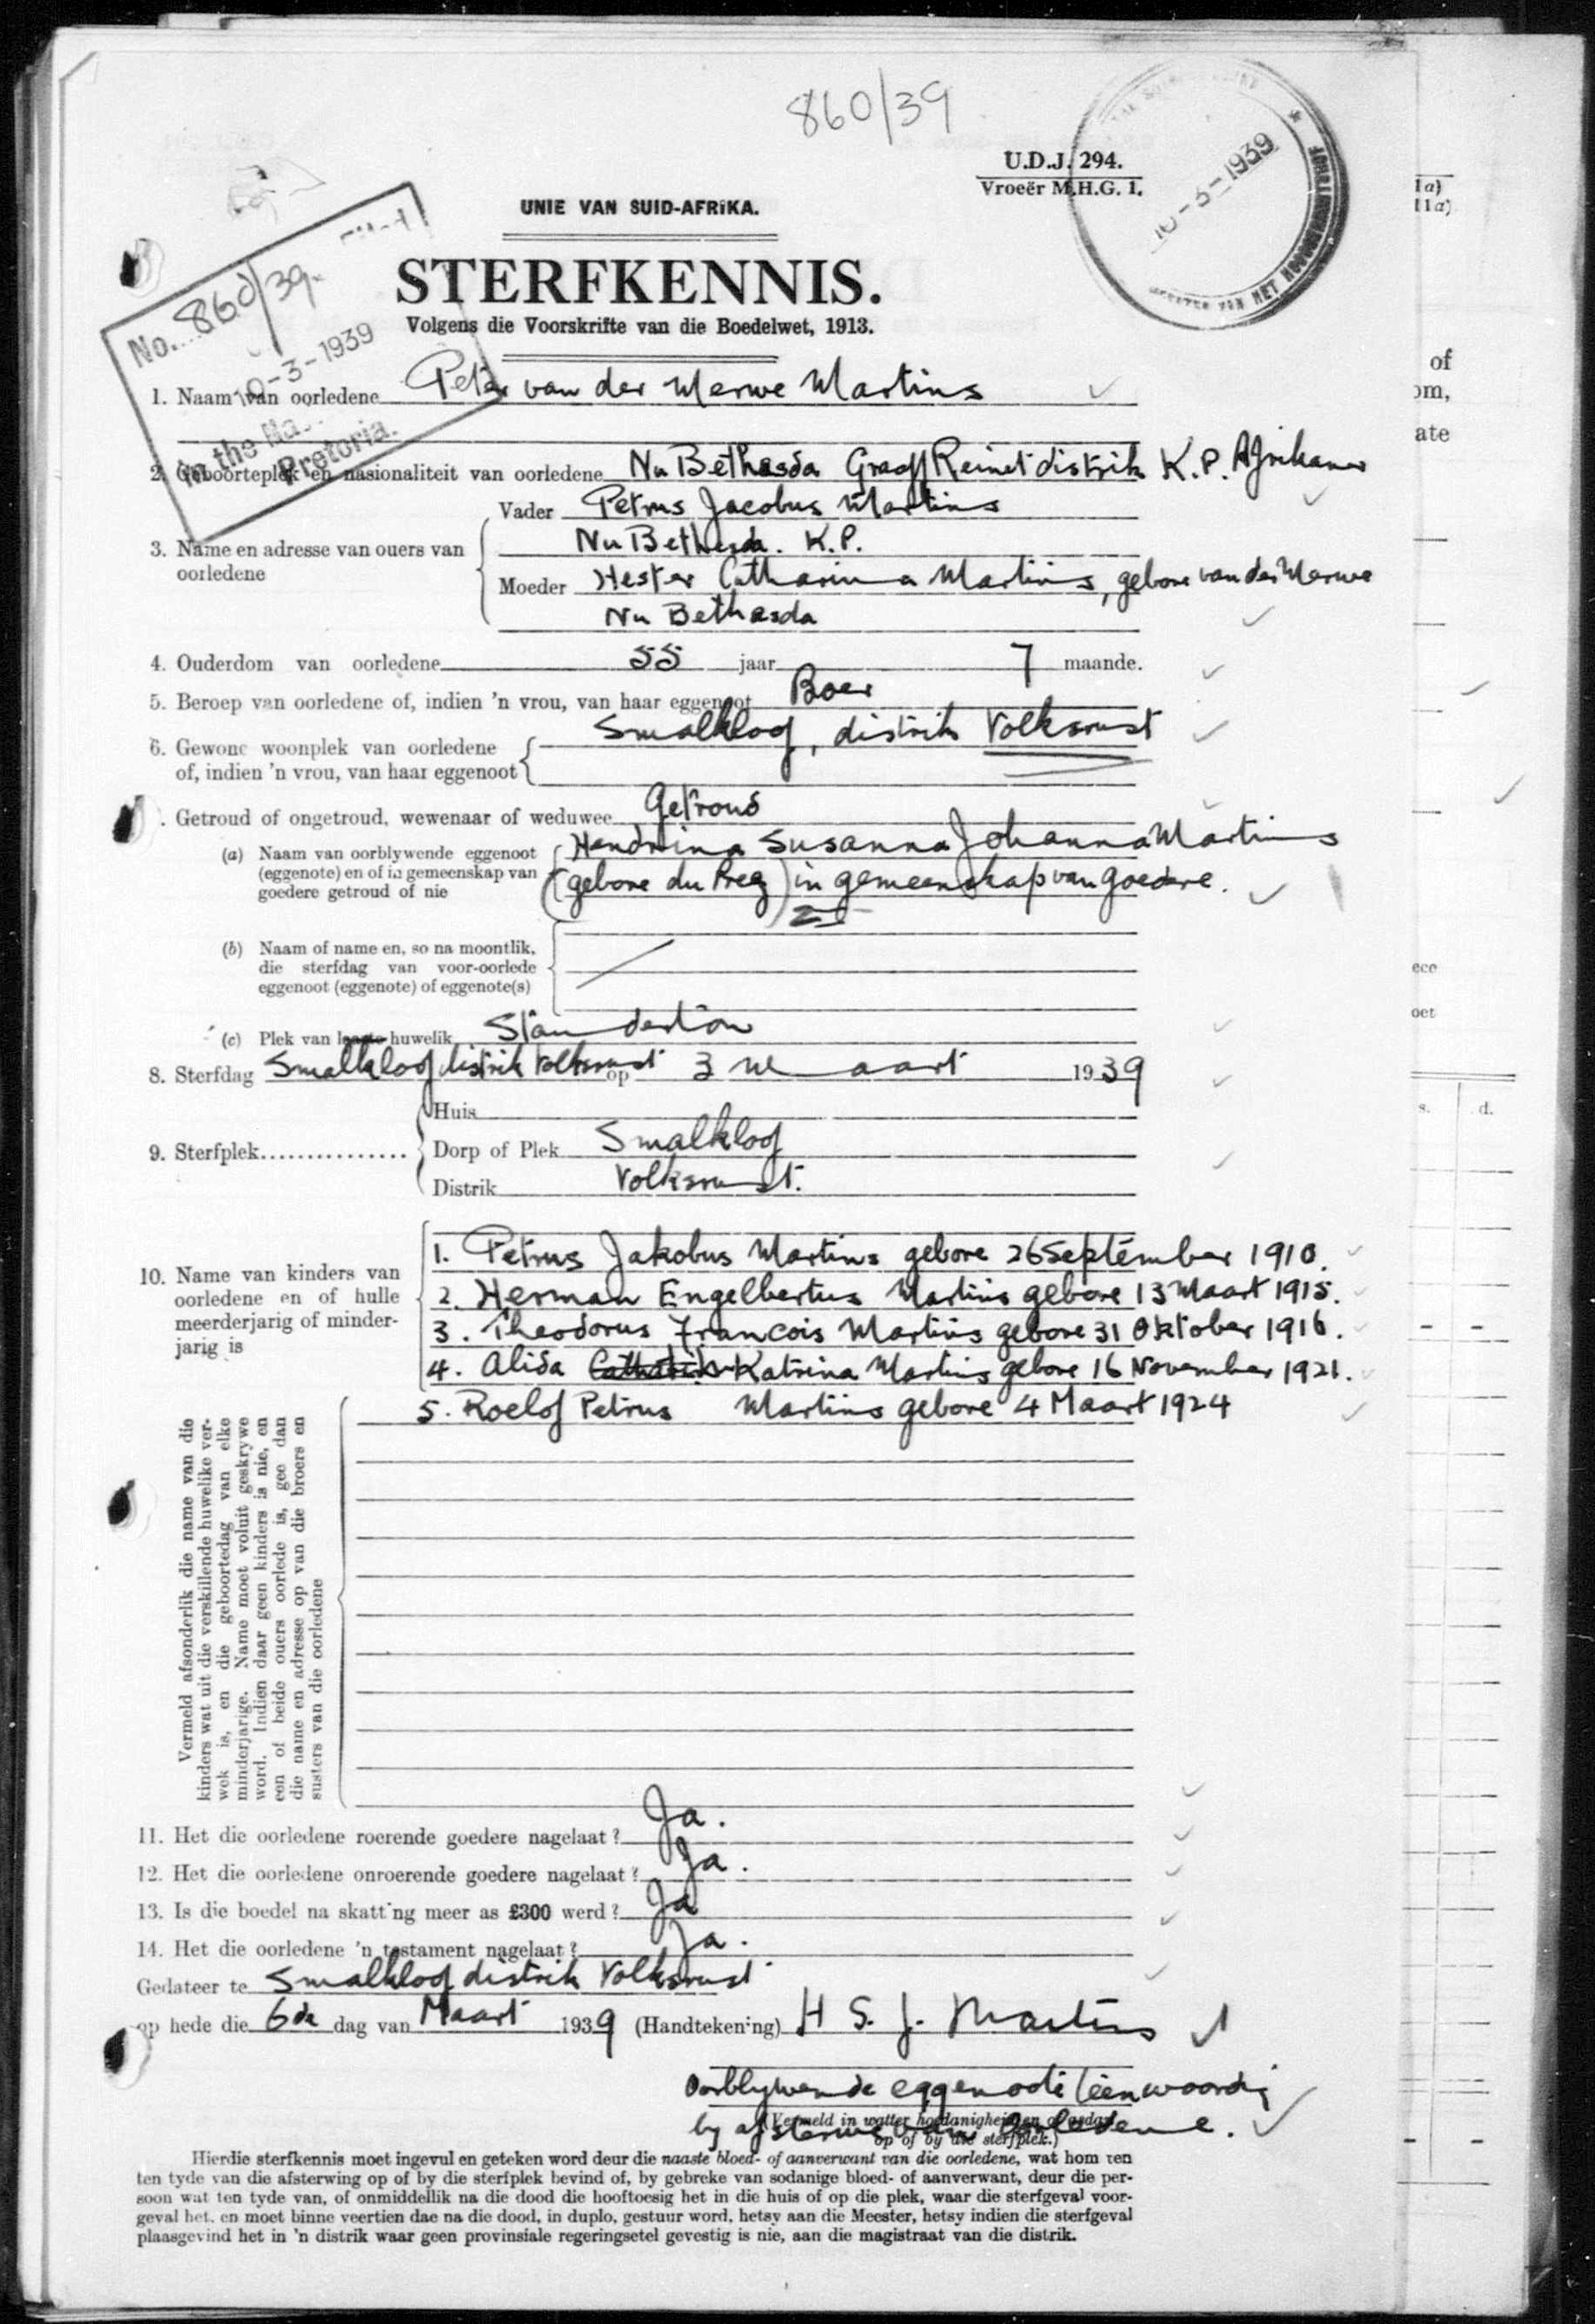 860/39
U.D.J. 294.
Vroeër M.H.G. 1.
10-3-1939
MEESTER VAN HET HOOGGERECHTSHOF
UNIE VAN SUID-AFRIKA.
STERFKENNIS.
Volgens die Voorskrifte van die Boedelwet, 1913.
No. 860/39.
10-3-1939
In the Ma
Pretoria.
1. Naam van oorledene Peter van der Merwe Martins
2. Geboorteplek en nasionaliteit van oorledene Nu Bethesda Graaff Reinet distrik K.P. Afrikaner
3. Name en adresse van ouers van oorledene
Vader Petrus Jacobus Martins
Nu Bethesda. K.P.
Moeder Hester Catharina Martins, gebore van der Merwe
Nu Bethesda
4. Ouderdom van oorledene 55 jaar 7 maande.
5. Beroep van oorledene of, indien 'n vrou, van haar eggenoot Boer
6. Gewone woonplek van oorledene of, indien 'n vrou, van haar eggenoot Smalkloof, distrik Volksrust
. Getroud of ongetroud, wewenaar of weduwee Getroud
(a) Naam van oorblywende eggenoot (eggenote) en of in gemeenskap van goedere getroud of nie
Hendrina Susanna Johanna Martins
(gebore du Preez) in gemeenskap van goedere.
(b) Naam of name en, so na moontlik, die sterfdag van voor-oorlede eggenoot (eggenote) of eggenote(s)
(c) Plek van laaste huwelik Standerton
8. Sterfdag Smalkloof distrik Volksrust op 3 Maart 1939
9. Sterfplek
Huis
Dorp of Plek Smalkloof
Distrik Volksrust.
10. Name van kinders van oorledene en of hulle meerderjarig of minderjarig is
1. Petrus Jakobus Martins gebore 26 September 1910.
2. Herman Engelbertus Martins gebore 13 Maart 1915.
3. Theodorus Francois Martins gebore 31 Oktober 1916.
4. Alida Katrina Martins gebore 16 November 1921.
5. Roelof Petrus Martins gebore 4 Maart 1924
Vermeld afsonderlik die name van die
kinders wat uit die verskillende huwelike ver-
wek is, en die geboortedag van elke
minderjarige. Name moet voluit geskrywe
word. Indien daar geen kinders is nie, en
een of beide ouers oorlede is, gee dan
die name en adresse op van die broers en
susters van die oorledene
11. Het die oorledene roerende goedere nagelaat? Ja.
12. Het die oorledene onroerende goedere nagelaat? Ja.
13. Is die boedel na skatting meer as £300 werd? Ja
14. Het die oorledene 'n testament nagelaat? Ja.
Gedateer te Smalkloof distrik Volksrust
op hede die 6de dag van Maart 1939 (Handtekening) H S. J. Martins
Oorblywende eggenoote teenwoordig
(Vermeld in watter hoedanigheid en of gedaan
by afsterwe van oorledene.
op of by die sterfplek.)
Hierdie sterfkennis moet ingevul en geteken word deur die naaste bloed- of aanverwant van die oorledene, wat hom ten
ten tyde van die afsterwing op of by die sterfplek bevind of, by gebreke van sodanige bloed- of aanverwant, deur die per-
soon wat ten tyde van, of onmiddellik na die dood die hooftoesig het in die huis of op die plek, waar die sterfgeval voor-
geval het, en moet binne veertien dae na die dood, in duplo, gestuur word, hetsy aan die Meester, hetsy indien die sterfgeval
plaasgevind het in 'n distrik waar geen provinsiale regeringsetel gevestig is nie, aan die magistraat van die distrik.